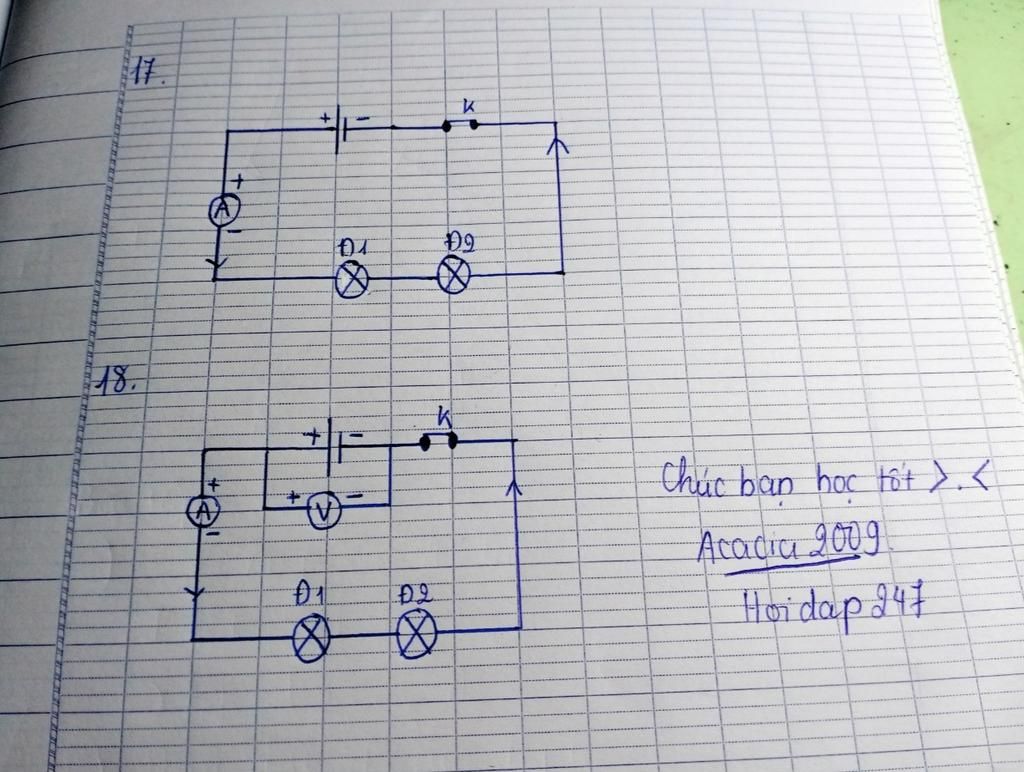 17.
+ - K
+
A
-
Đ1 Đ2
18.
+ - K
+
A
-
+ V -
Đ1 Đ2
Chúc bạn học tốt >.<
Acadia 2009
Hoidap247